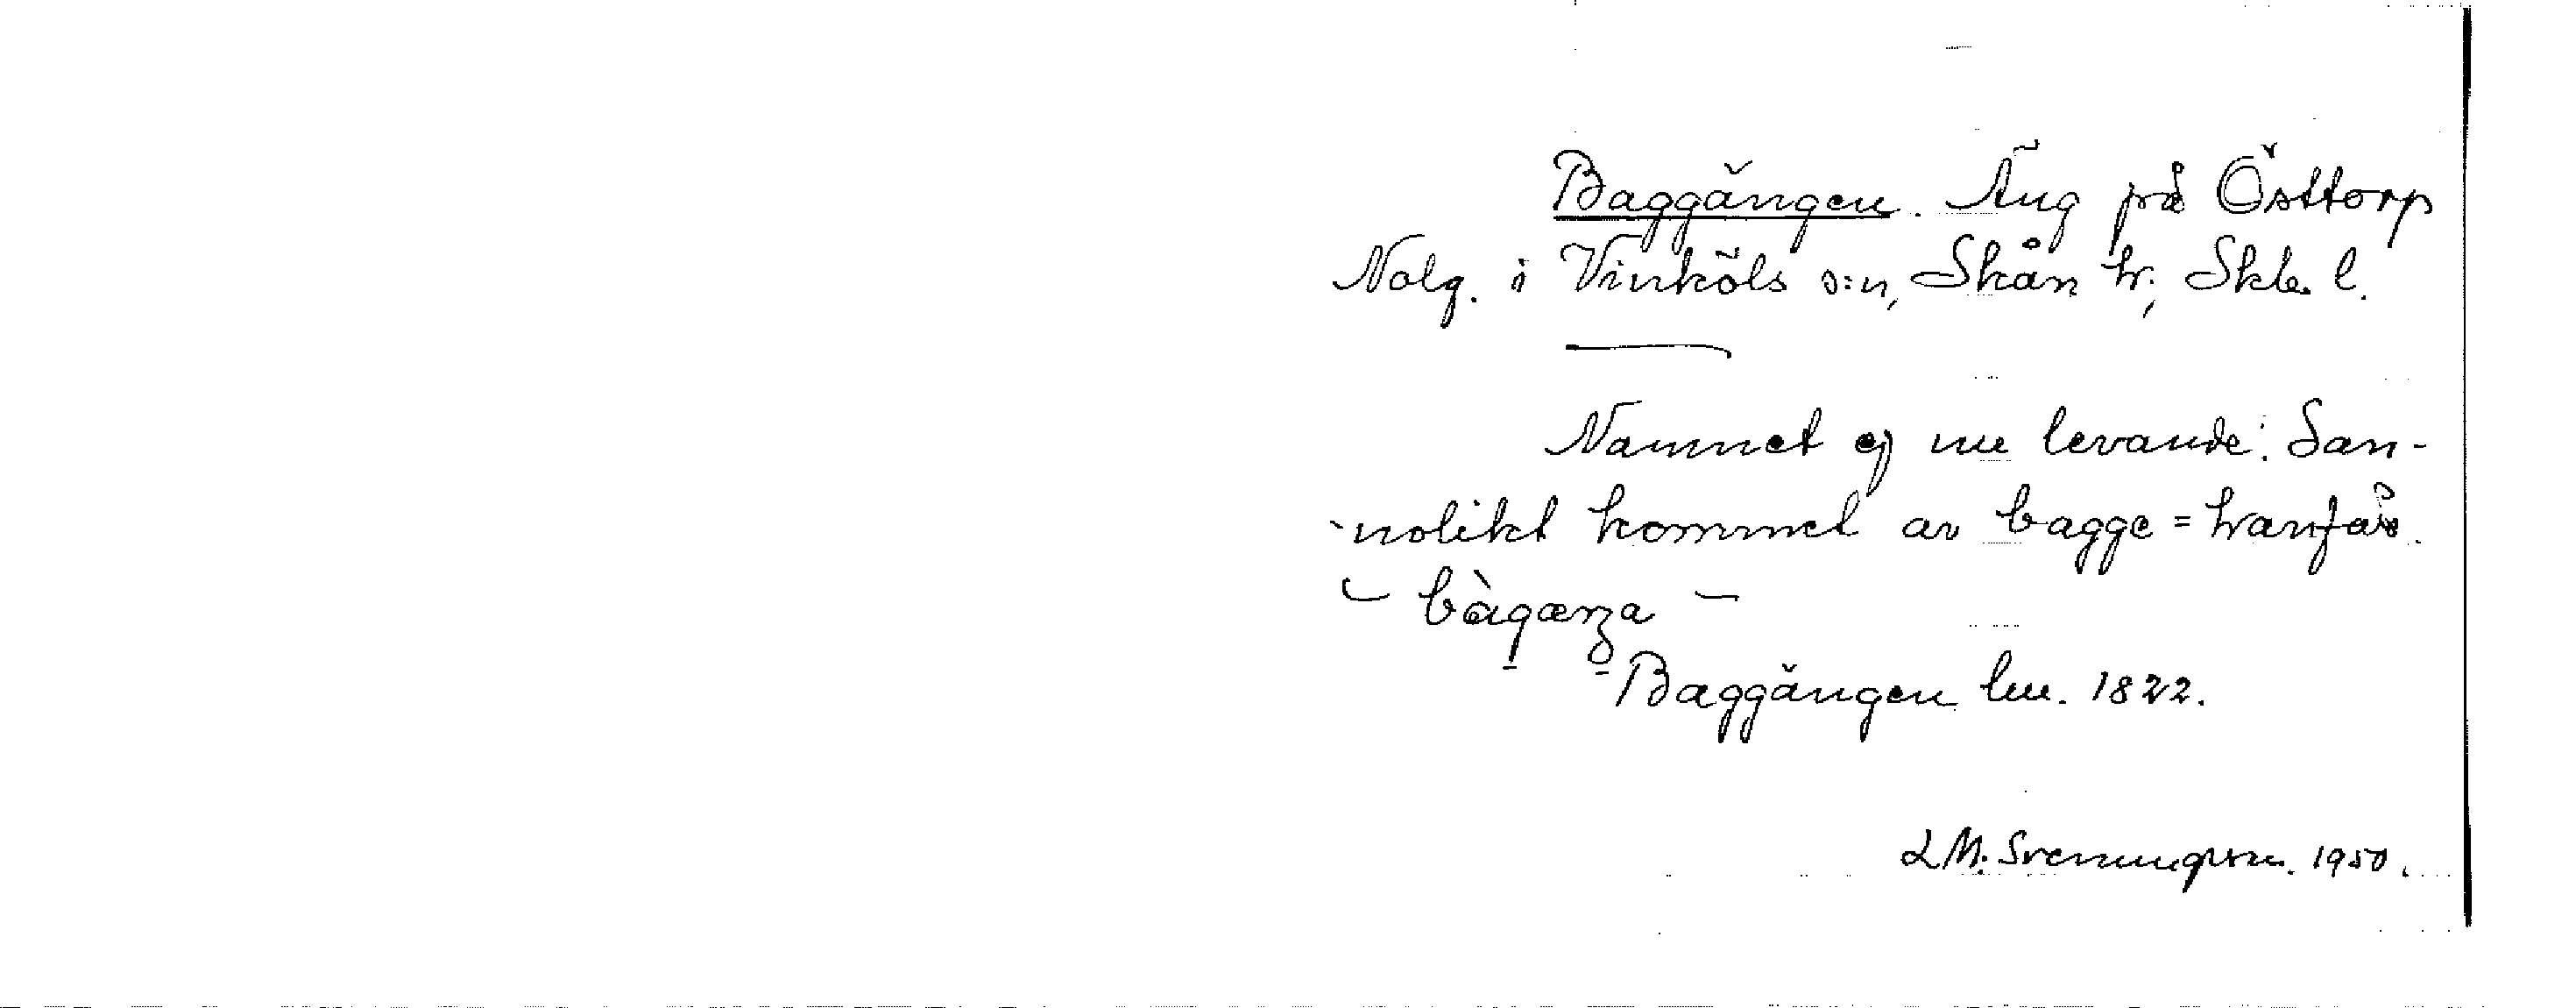 Baggängen. Äng på Östtorp
Nolg. i Vinköls s:n, Skån hr; Skbs. l.
Namnet ej nu levande. San-
nolikt kommet av bagge = hanfår.
- bàgæŋa -
Baggängen lm. 1822.
L M. Svenungsson. 1950.